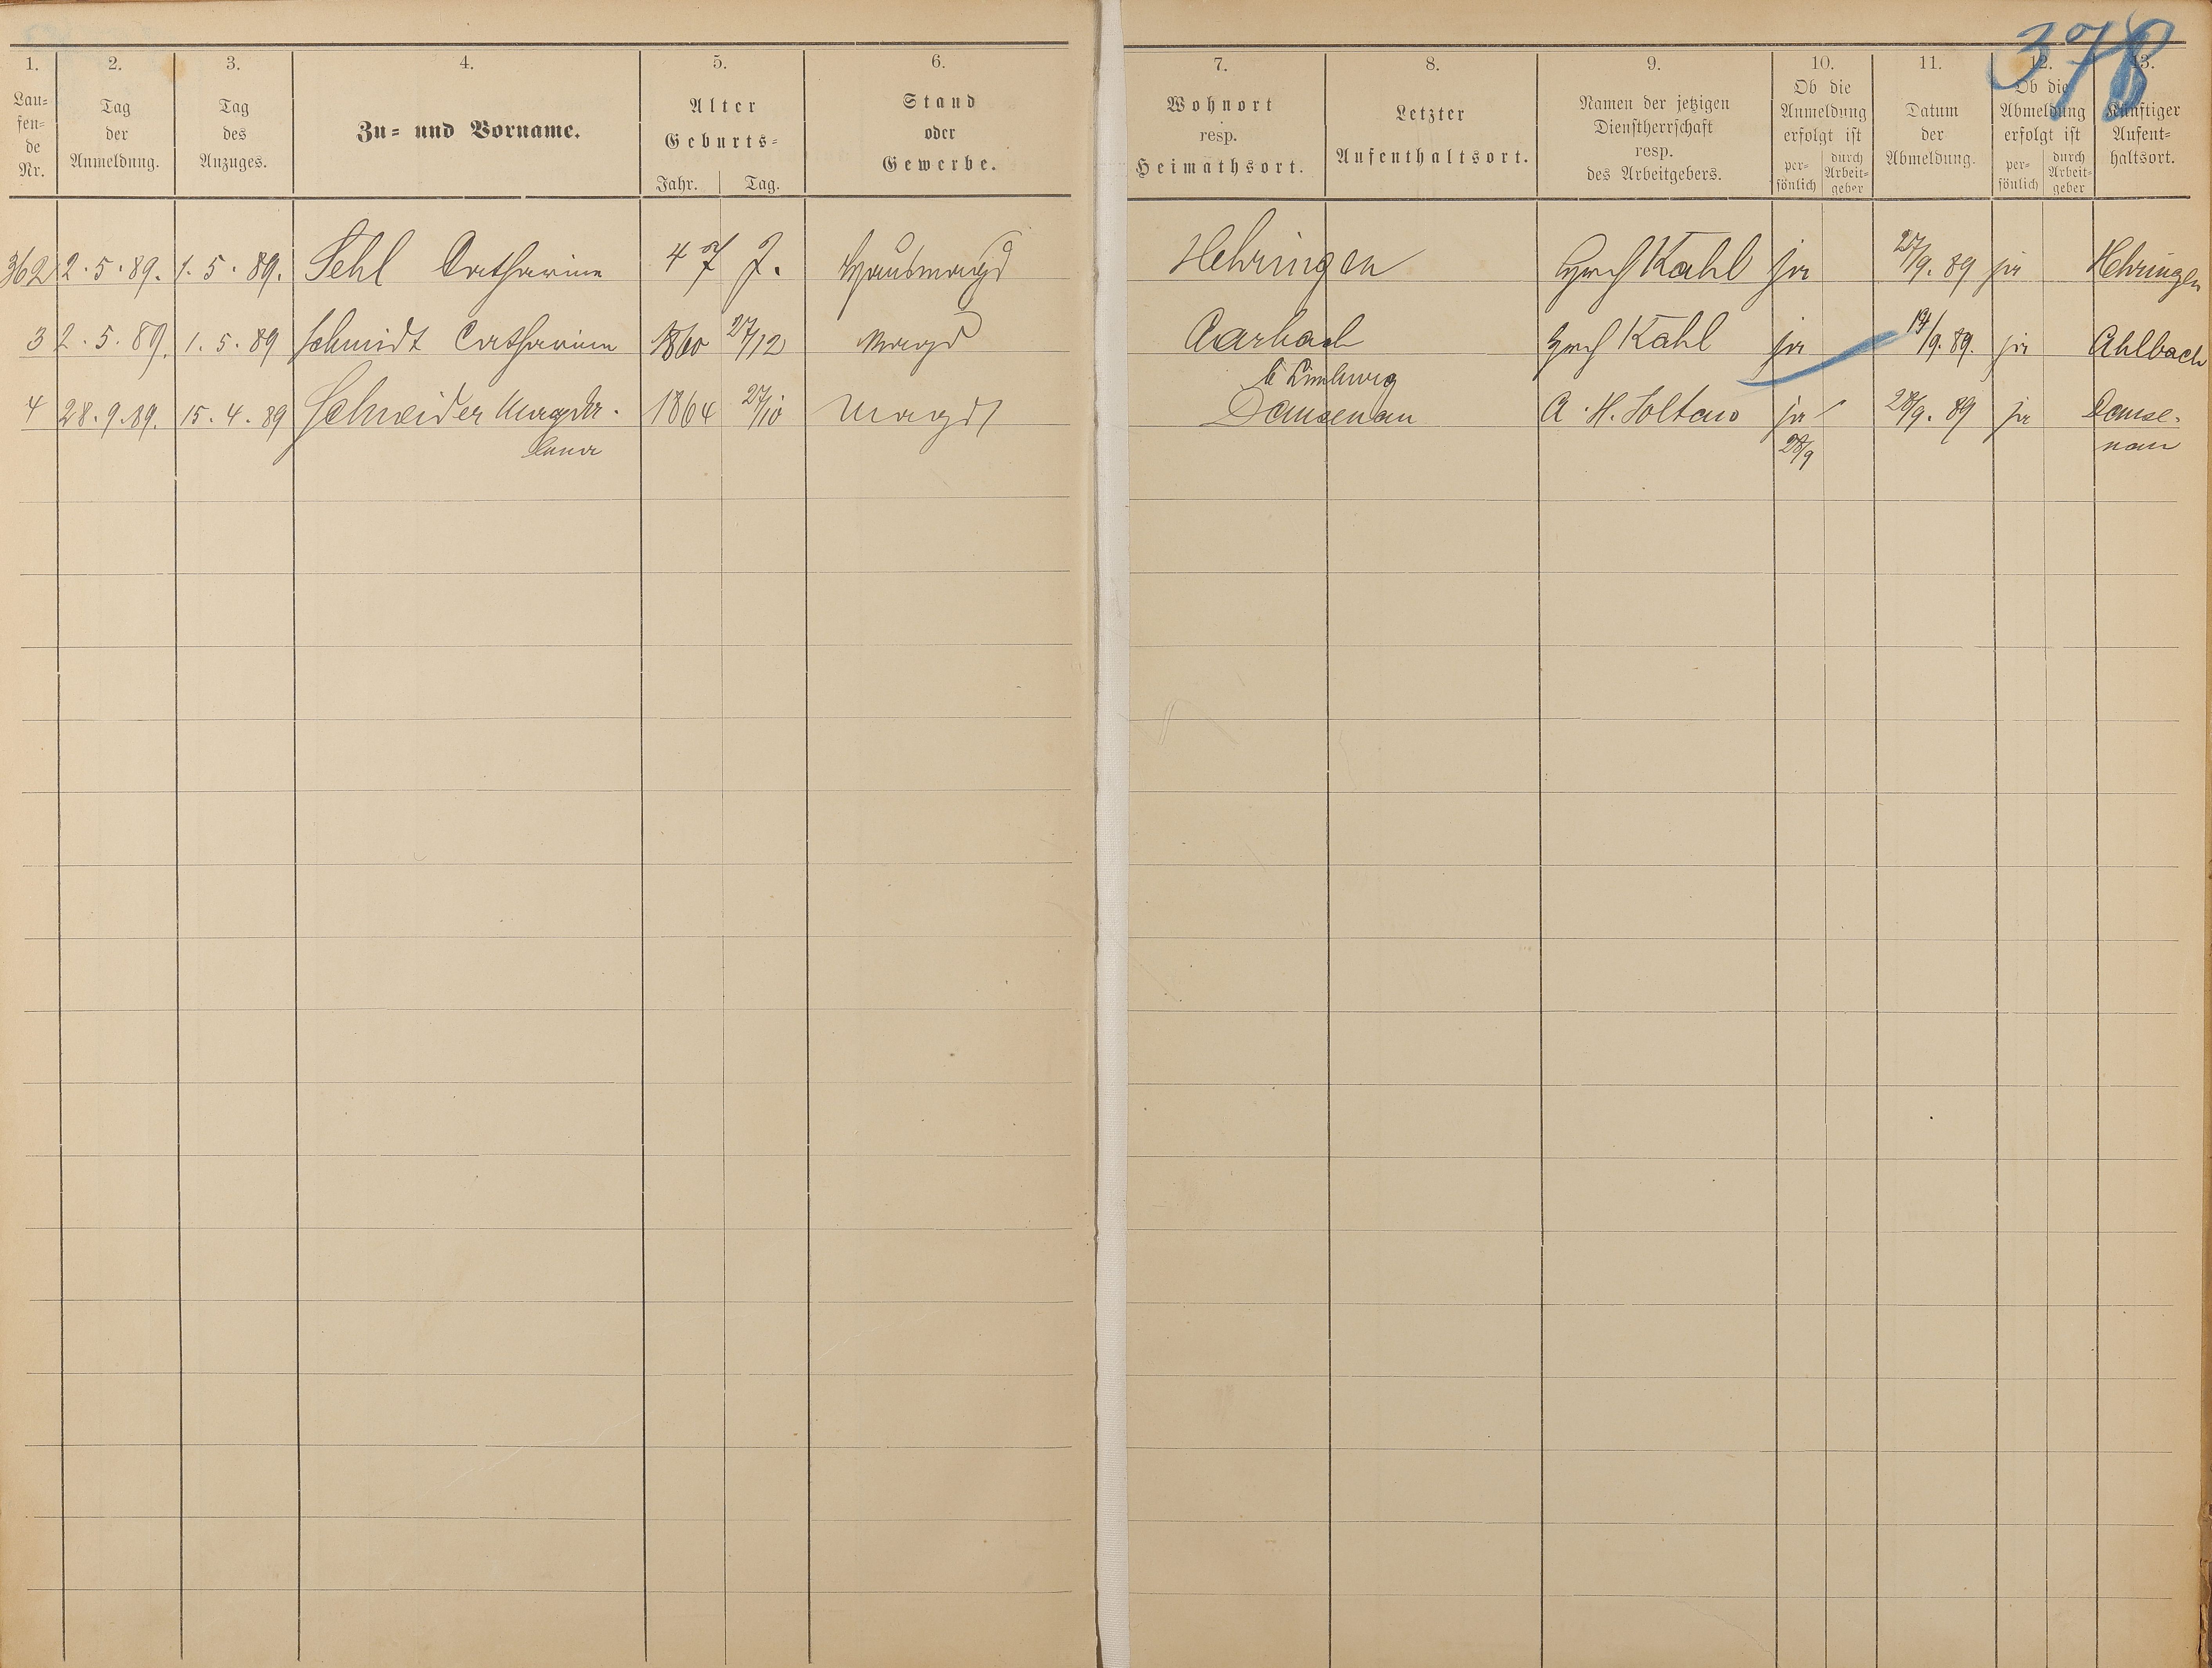 378
1. 2. 3. 4. 5. 6. 7. 8. 9. 10. 11. 12. 13.
Lau-
fen-
de
Nr.
Tag
der
Anmeldung.
Tag
des
Anzuges.
Zu- und Vorname.
Alter
Geburts-
Jahr. Tag.
Stand
oder
Gewerbe.
Wohnort
resp.
Heimathsort.
Letzter
Aufenthaltsort.
Namen der jetzigen
Dienstherrschaft
resp.
des Arbeitgebers.
Ob die
Anmeldung
erfolgt ist
per-
sönlich
durch
Arbeit-
geber
Datum
der
Abmeldung.
Ob die
Abmeldung
erfolgt ist
per-
sönlich
durch
Arbeit-
geber
Künftiger
Aufent-
haltsort.
362 2.5.89. 1.5.89. Sehl Catharine 47 J. Hausmagd Hehringen Kahl ja 27/9.89 ja Hehringen
3 2.5.89. 1.5.89 Schmidt Catharine 1860 27/12 Magd Aarbach Kahl ja /9.89. ja Ahlbach
b Limburg
4 28.9.89. 15.4.89 Schneider Magda- 1864 27/10 Magd Dausenau A. H. Soltau ja 28/9.89 ja Dause-
lena 28/9 nau